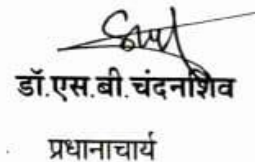 डॉ.एस.बी.चंदनशिव
प्रधानाचार्य